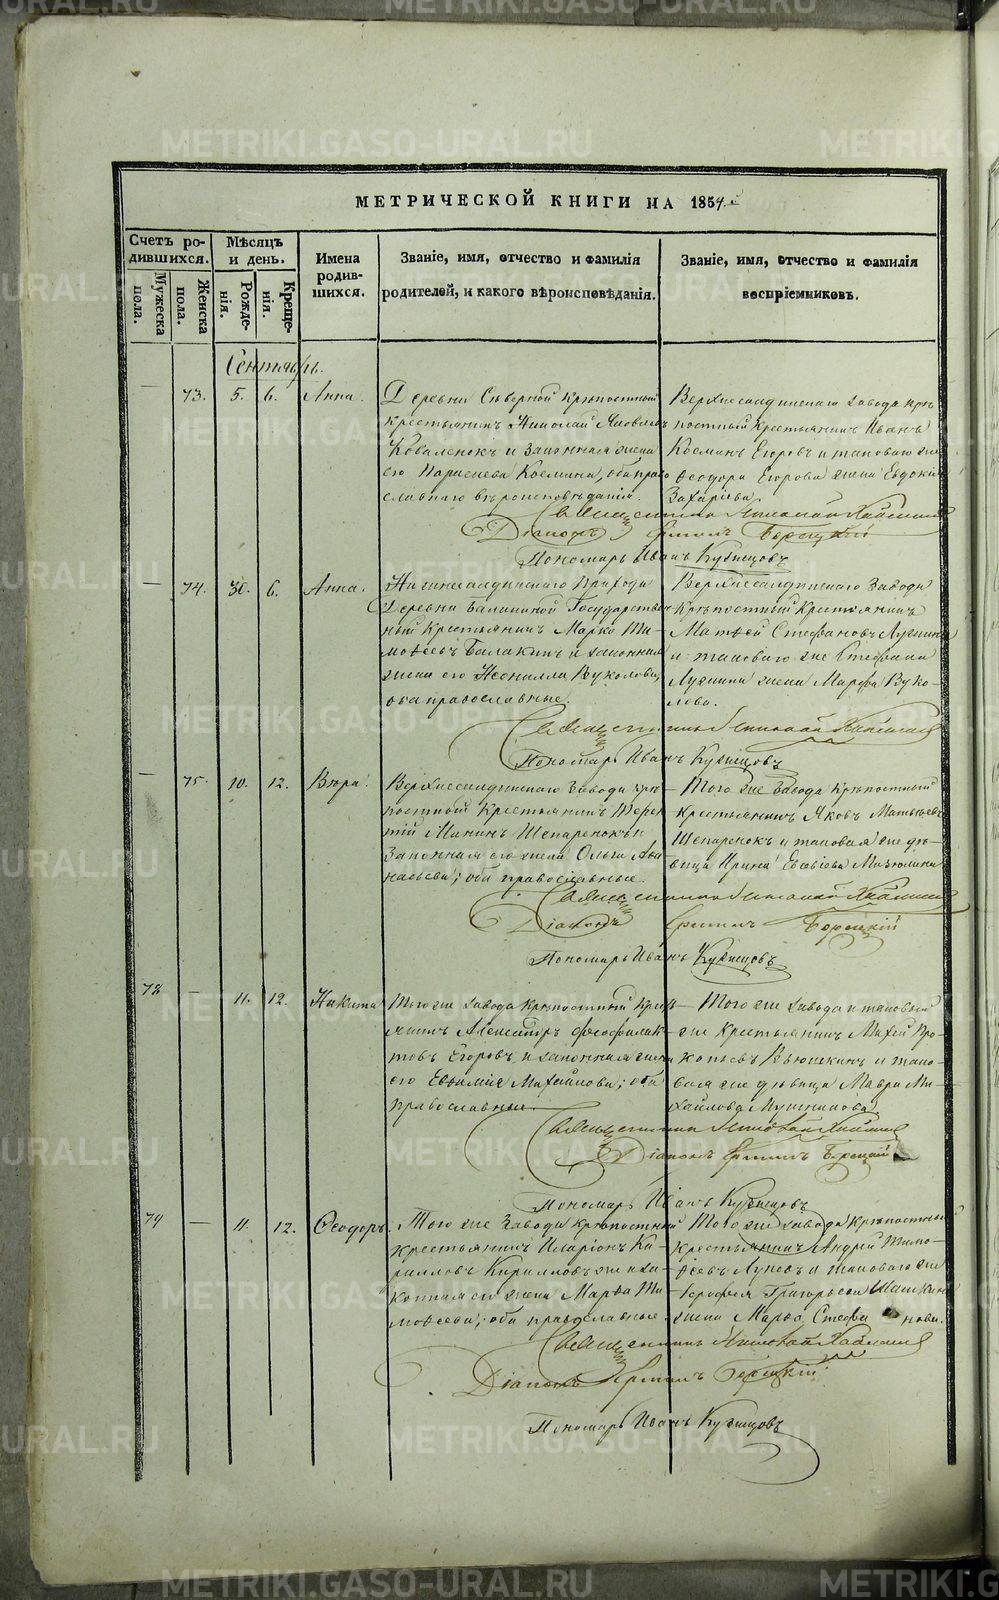 МЕТРИЧЕСКОЙ КНИГИ НА 1854.й
Счетъ ро-
дившихся.
Мужеска
пола.
Женска
пола.
Мѣсяцъ
и день.
Рожде-
нія.
Креще-
нія.
Имена
родив-
шихся.
Званіе, имя, отчество и фамилія
родителей, и какого вѣроисповѣданія.
Званіе, имя, отчество и фамилія
воспріемниковъ.
Сентябрь.
— 73. 5. 6. Анна.
Деревни Сѣверной крѣпостный
крестьянинъ Николай Яковлевъ
Коваленокъ и законная жена
его Параскева Космина, оба право
славнаго вѣроисповѣданія.
Верхнесалдинскаго завода крѣ
постный крестьянинъ Иванъ
Косминъ Егоровъ и таковаго же
Феодора Егорова жена Евдокия
Захарова.
Священникъ Николай
Діаконъ
Пономарь Иванъ Кузнецовъ
— 74. 30. 6. Анна.
Нижнесалдинскаго Прихода
Деревни Балакиной Государствен
ный Крестьянинъ Марко Ти-
моѳеевъ Балакинъ и законная
жена его Неонилла Вуколова,
оба православные.
Верхнесалдинскаго Завода
Крѣпостный Крестьянинъ
Матвей Стефановъ
и таковаго же Стефана
жена Марфа Вуко-
лова.
Священникъ Николай
Пономарь Иванъ Кузнецовъ
— 75. 10. 12. Вѣра.
Верхнесалдинскаго Завода крѣ
постный Крестьянинъ Терен
тій Мининъ Шепаренокъ и
Законная его жена Ольга Аѳа
насьева; оба православные.
Того же Завода Крѣпостный
крестьянинъ Яковъ Матвѣевъ
Шепаренокъ и таковая же дѣ-
вица Ирина Евсѣвіева Мазюлина
Священникъ Николай
Діаконъ
Пономарь Иванъ Кузнецовъ
78 — 11. 12. Никита
Того же завода Крѣпостный Крестья
нинъ Александръ Феофилак-
товъ Егоровъ и законная жена
его Евѳимія Михайлова; оба
православные.
Того же завода и таковый
же Крестьянинъ Макей Про-
копьевъ и тако-
вая же дѣвица Мавра Ми-
хайлова
Священникъ Николай
Діаконъ
Пономарь Иванъ Кузнецовъ
79 — 11. 12. Ѳеодоръ.
Того же Завода крѣпостной
крестьянинъ Иларіонъ Ки-
рилловъ Кирилловъ же и за-
конная его жена Марѳа Ти-
моѳеева; оба православные.
Того же завода крѣпостный
крестьянинъ Андрей Тимо-
ѳеевъ и таковаго же
Григорьева
жена Марѳа Стефанова.
Священникъ Николай
Діаконъ
Пономарь Иванъ Кузнецовъ
METRIKI.GASO-URAL.RU